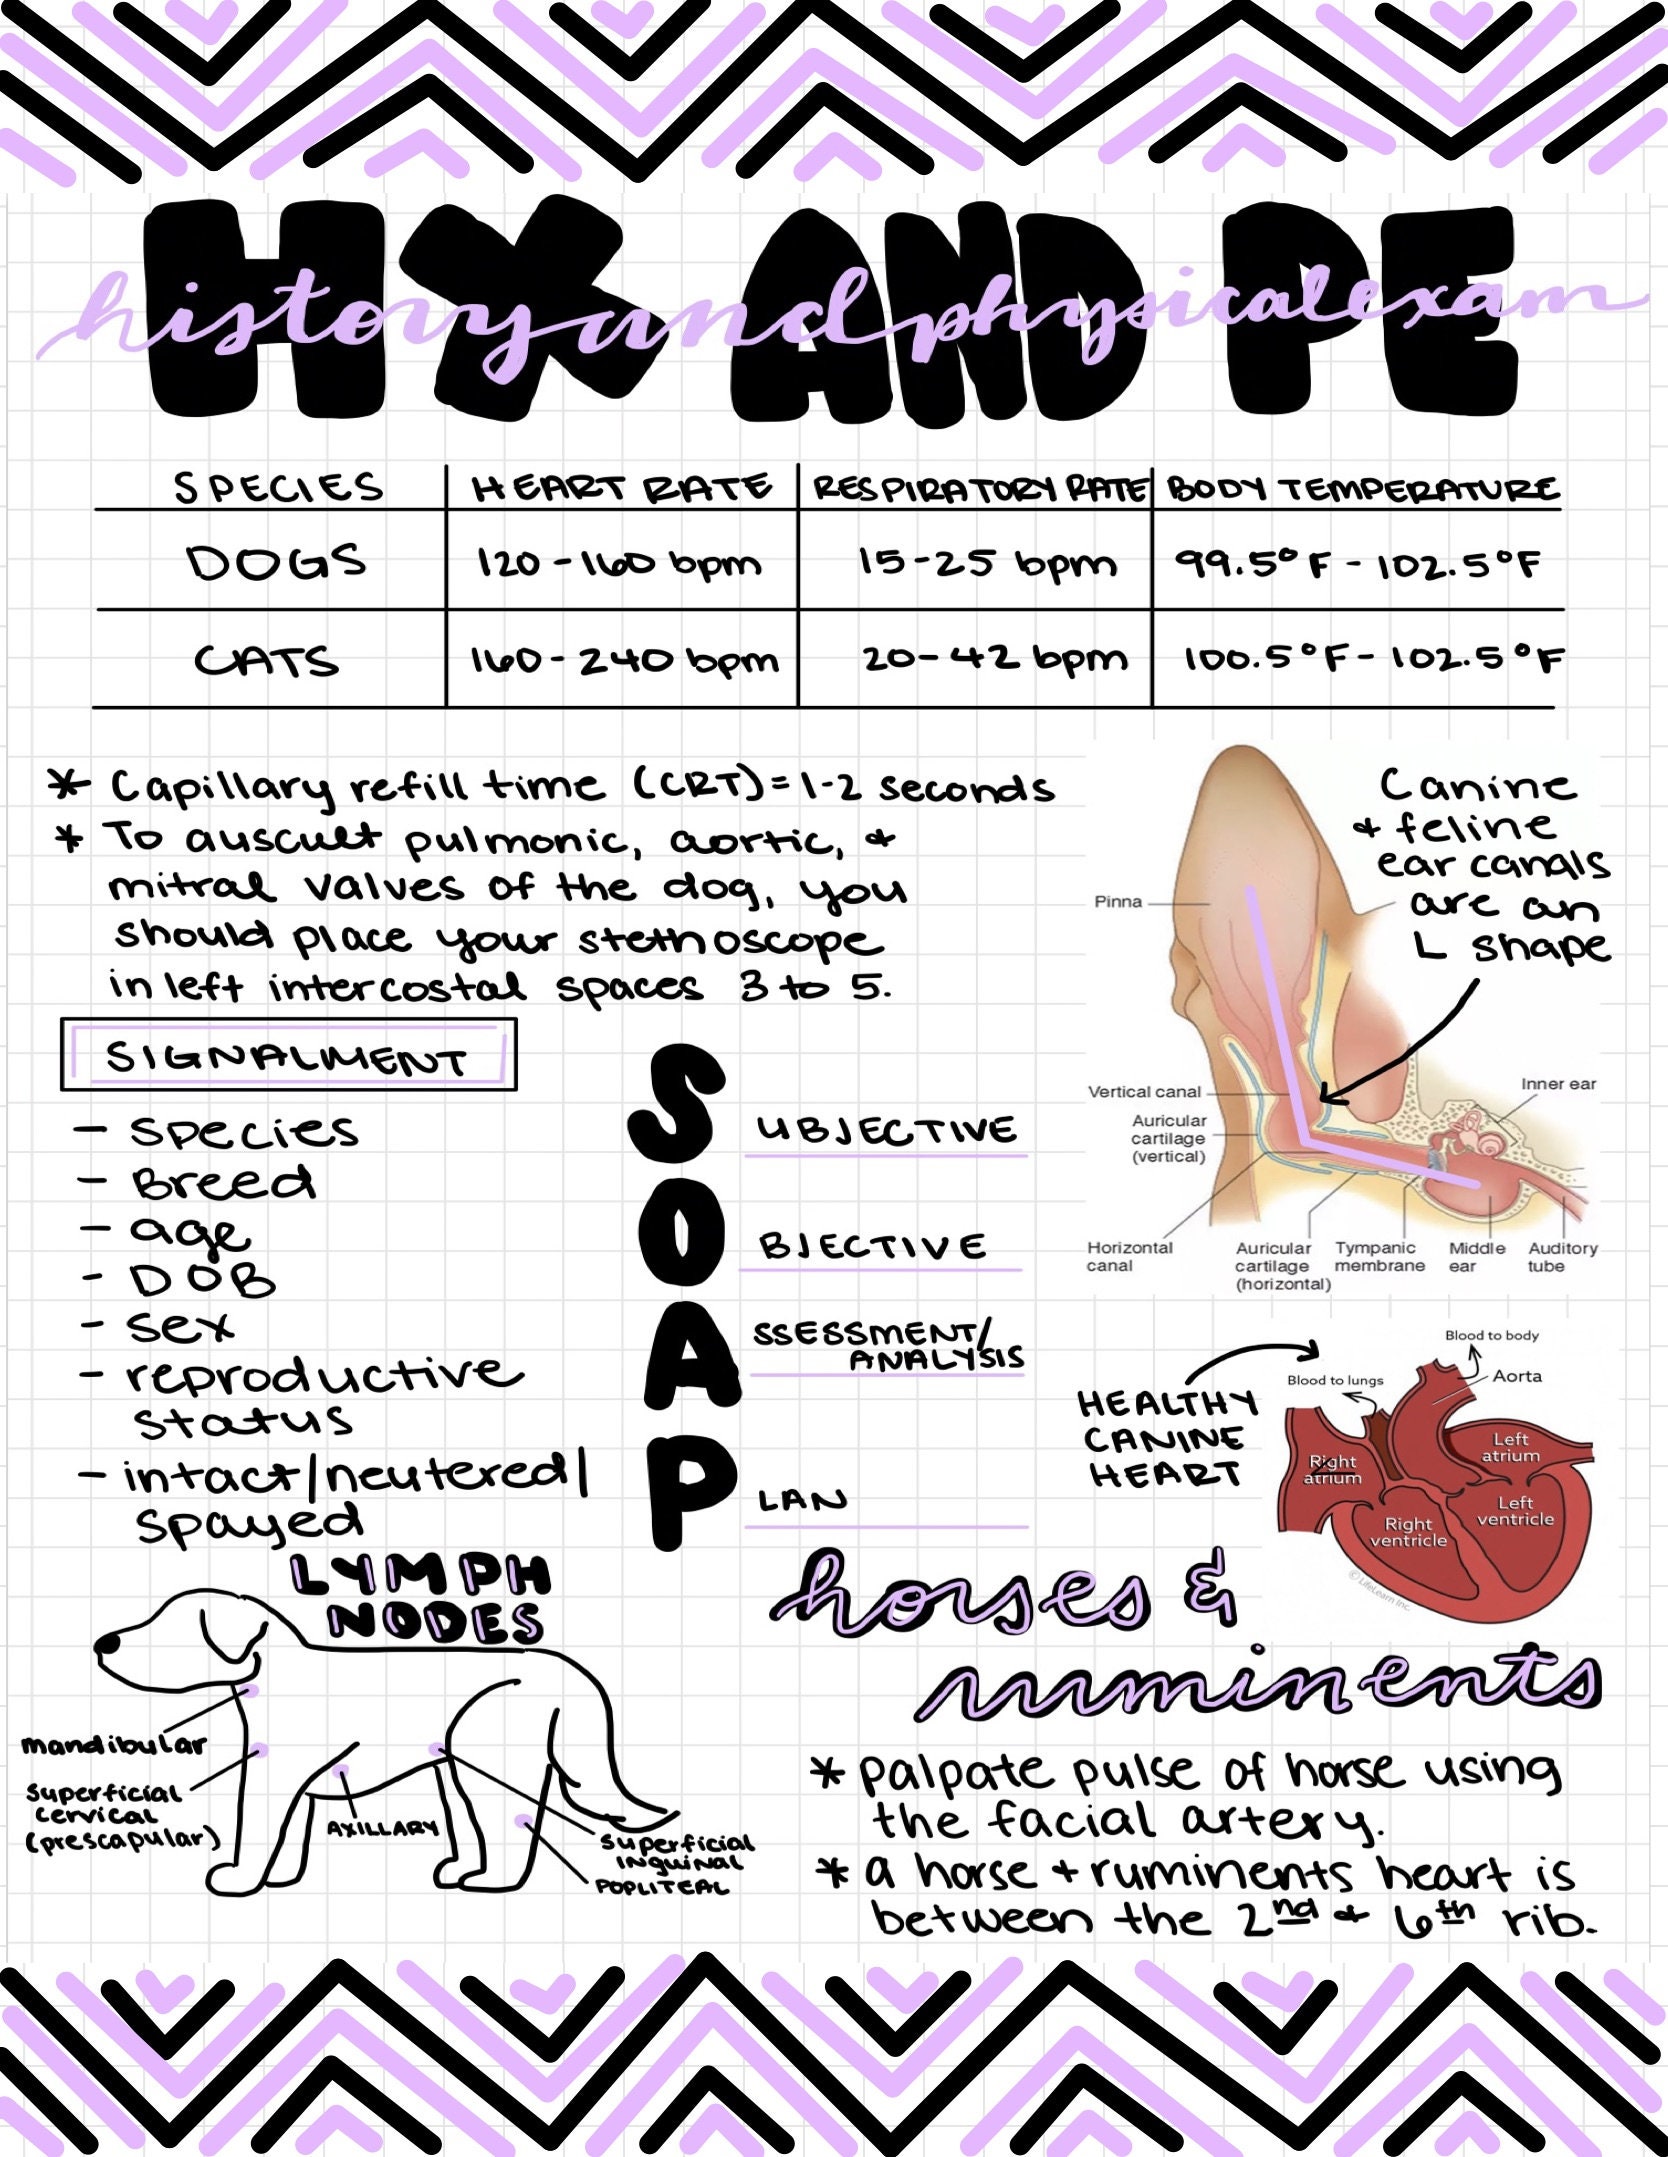 HX AND PE
history and physical exam
SPECIES HEART RATE RESPIRATORY RATE BODY TEMPERATURE
DOGS 120-160 bpm 15-25 bpm 99.5°F - 102.5°F
CATS 160-240 bpm 20-42 bpm 100.5°F - 102.5°F
* Capillary refill time (CRT) = 1-2 seconds
* To auscult pulmonic, aortic, &
mitral valves of the dog, you
should place your stethoscope
in left intercostal spaces 3 to 5.
Canine
& feline
ear canals
are an
L shape
Pinna
Vertical canal
Auricular
cartilage
(vertical)
Inner ear
Horizontal
canal
Auricular
cartilage
(horizontal)
Tympanic
membrane
Middle
ear
Auditory
tube
SIGNALMENT
- species
- Breed
- age
- DOB
- sex
- reproductive
status
- intact/neutered/
spayed
SUBJECTIVE
OBJECTIVE
ASSESSMENT/
ANALYSIS
PLAN
HEALTHY
CANINE
HEART
Blood to body
Blood to lungs
Aorta
Right
atrium
Left
atrium
Left
ventricle
Right
ventricle
© LifeLearn Inc.
LYMPH
NODES
mandibular
superficial
cervical
(prescapular)
AXILLARY
superficial
inguinal
POPLITEAL
horses &
ruminents
* palpate pulse of horse using
the facial artery.
* a horse + ruminents heart is
between the 2nd & 6th rib.